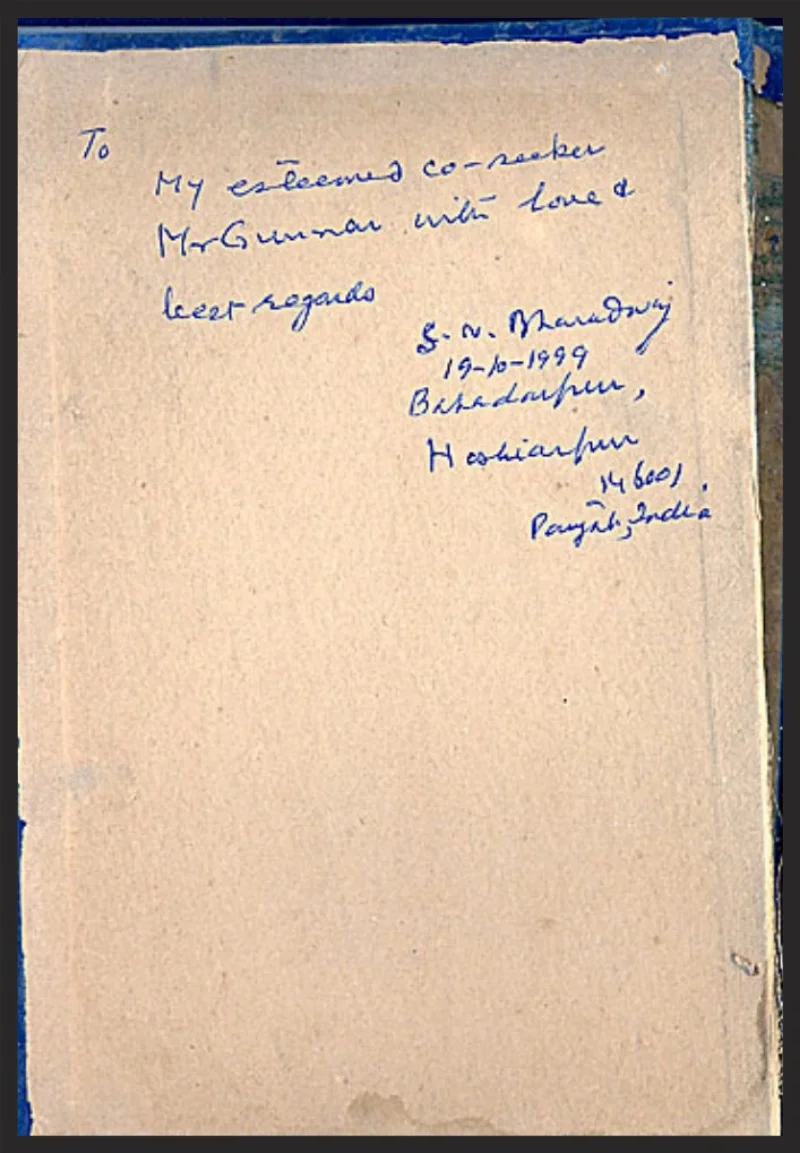 To
My esteemed co-seeker
Mr Gunnar with love &
best regards
S. N. Bharadwaj
19-10-1999
Bahadurpur,
Hoshiarpur
146001,
Punjab, India